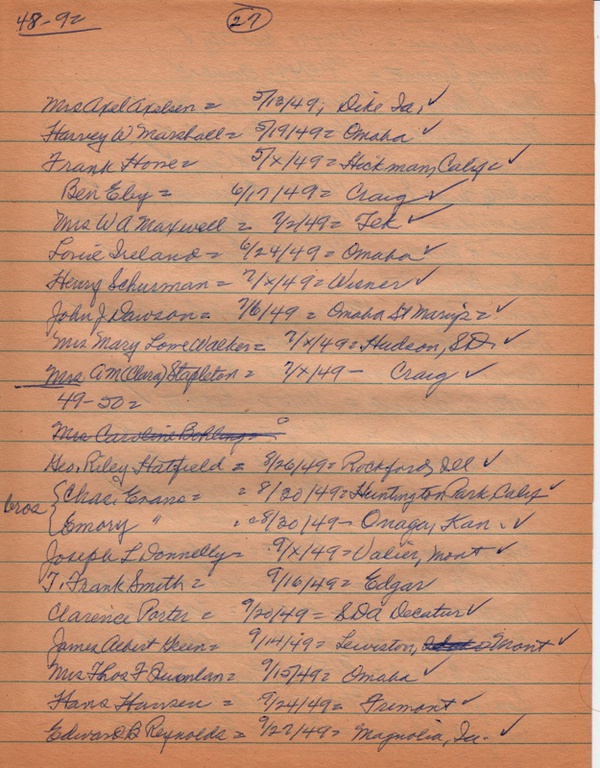 48-92 27
Mrs Axel Axelsen = 5/13/49, Dike Ia, ✓
Harvey W Marshall = 5/19/49 = Omaha ✓
Frank Howe = 5/x/49 = Hickman, Calif ✓
Ben Eby = 6/17/49 = Craig ✓
Mrs W A Maxwell = 7/2/49 = Tek ✓
Lovie Ireland = 6/24/49 = Omaha ✓
Henry Schurman = 7/x/49 = Wisner ✓
John J Dawson = 7/6/49 = Omaha St Mary's = ✓
Mrs Mary Lowe Walker = 7/x/49 = Hudson, SD. ✓
Mrs A M (Clara) Stapleton = 7/x/49 - Craig ✓
49-50 =
Mrs Caroline Bohling =
Geo. Riley Hatfield = 8/26/49 = Rockford, Ill ✓
bros { Chas. Evans = = 8/20/49 = Huntington Park, Calif ✓
Emory " = 8/20/49 - Onaga, Kan. ✓
Joseph L Donnelly = 9/x/49 = Valier, Mont ✓
T. Frank Smith = 9/16/49 = Edgar
Clarence Porter = 9/20/49 = SDA Decatur ✓
James Albert = 9/14/49 = Lewiston, Mont ✓
Mrs Thos F Quinlan = 9/15/49 = Omaha ✓
Hans Hansen = 9/24/49 = Fremont ✓
Edward B Reynolds = 9/27/49 = Magnolia, Ia. ✓